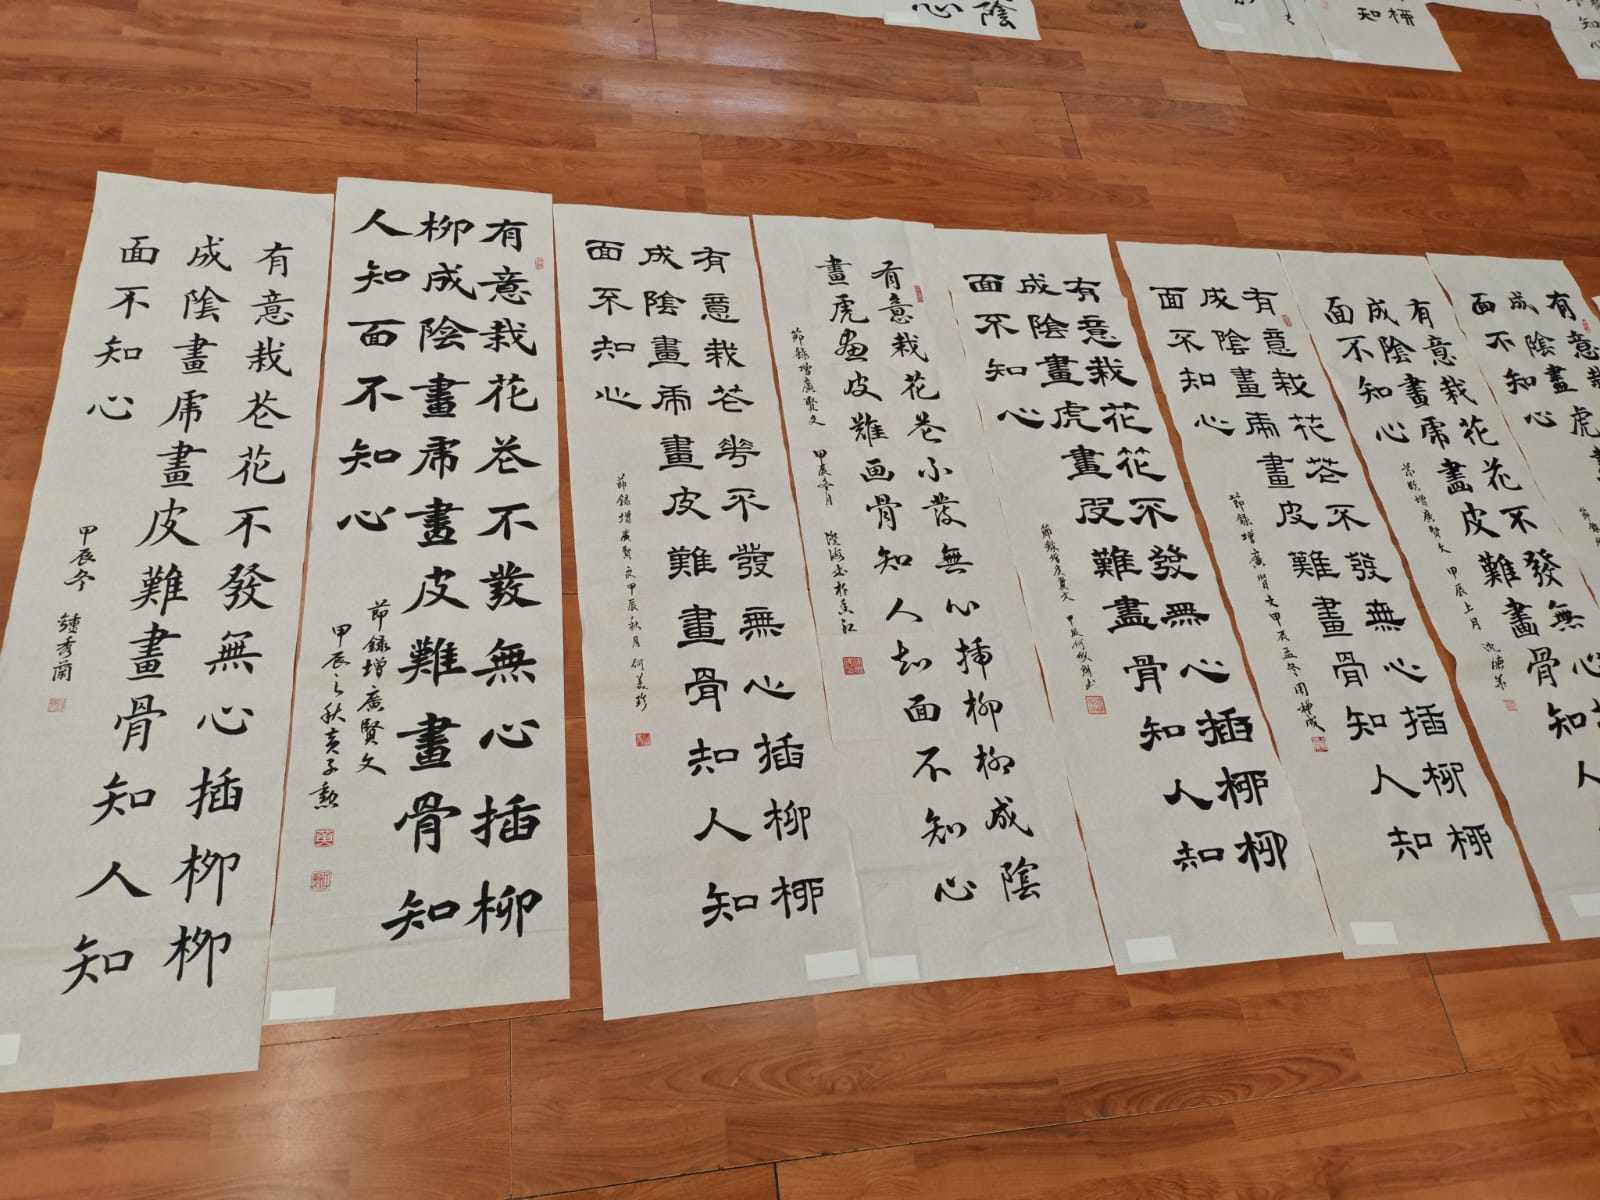 有意栽花花不發無心插柳柳
成陰畫虎畫皮難畫骨知人知
面不知心
甲辰冬 鍾秀蘭
有意栽花花不發無心插柳
柳成陰畫虎畫皮難畫骨知
人知面不知心
節錄增廣賢文
甲辰之秋黃子勲
有意栽花華不發無心插柳柳
成陰畫虎畫皮難畫骨知人知
面不知心
節錄增廣賢文甲辰秋月何美珍
有意栽花花不發無心插柳柳成陰
畫虎画皮難画骨知人知面不知心
節錄增廣賢文 甲辰冬月
有意栽花花不發無心插柳柳
成陰畫虎畫皮難畫骨知人知
面不知心
節錄增廣賢文 甲辰何
有意栽花花不發無心插柳柳
成陰畫虎畫皮難畫骨知人知
面不知心
節錄增廣賢文甲辰孟冬周
有意栽花花不發無心
成陰畫虎畫皮難畫骨知
面不知心
增廣賢文 甲辰上月 沈德弟
有意栽
成陰畫虎畫
面不知心
陰
心
柳
知